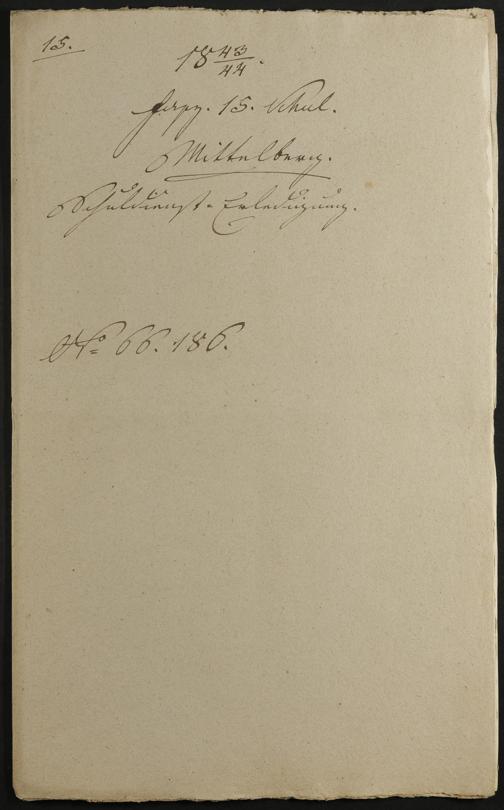 15.
18 43/44.
Fasz. 15. Schul.
Mittelberg.
Schuldienst-Erledigung.
No 66. 186.